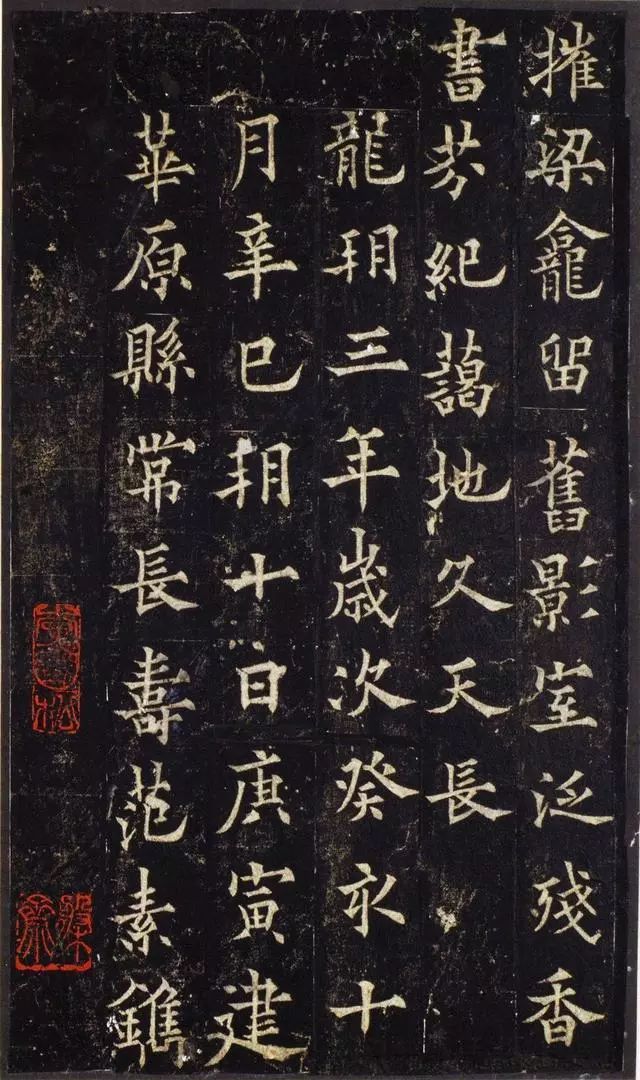 摧梁龕留舊影室泛殘香
書芬紀藹地久天長
龍朔三年歲次癸亥十
月辛巳朔十日庚寅建
華原縣常長壽范素鐫